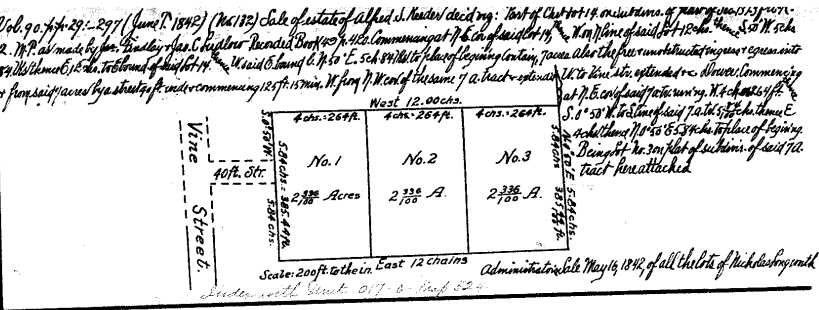 Vol. 90. p.p. 29:-297 (June T. 1842) (No 132) Sale of estate of Alfred S. Reeder dec'd ng: Part of Ch. Lot 14. on subdivns. of rear of secs. 13.
2. M.P. as made by Jas. Findlay & Jas. C. Ludlow Recorded Book 49 p. 420. Commencing at N.E. cor. of said lot 14, thence W. on N line of said lot 12 chs. thence S. 50' W. 5 chs
84 lks thence E, 12 chs. to E bound of said lot 14. thence W. said E bound E. N. 50' E. 5 ch. 84 lks to place of begining contain'g 7 acres Also the free & unobstructed ingress & egress into
& from said 7 acres by a street 40 ft. and & commencing 125 ft. 15 min. W. from N.W. cor of the same 7 a. tract & extend'g W. to Vine str. extended & c Dower: Commencing
at N.E. cor of said 7 a tr. run'ng. W. 4 ch or 264 ft.
S. 0° 50' W. to S line of said 7 a. td. 5 84/100 chs. thence E
4 chs thence N. 0° 50' E 5.84 chs. to place of begining.
Being lot No. 3 on plat of subdivis. of said 7 A.
tract here attached
West 12.00 chs.
4 chs. = 264 ft. 4 chs. = 264 ft. 4 chs. = 264 ft.
S. 0° 50' W.
5.84 chs = 385.44 ft.
5.84 chs.
No. 1 No. 2 No. 3
2 336/100 Acres 2 336/100 A. 2 336/100 A.
5.84 chs
385.44 ft.
N. 0° 50' E 5.84 chs.
40 ft. Str.
Vine Street.
East 12 chains
Scale: 200 ft. to the in.
Administrators Sale May 16, 1842, of all the lots of Nicholas Longworth
Index with Unit 017-0-Map 524